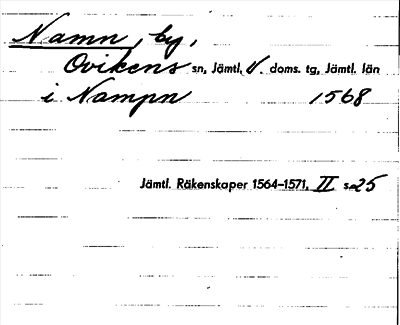 Namn, by,
Ovikens sn, Jämtl. V. doms. tg, Jämtl. län
i Nampn 1568
Jämtl. Räkenskaper 1564–1571, II s. 25